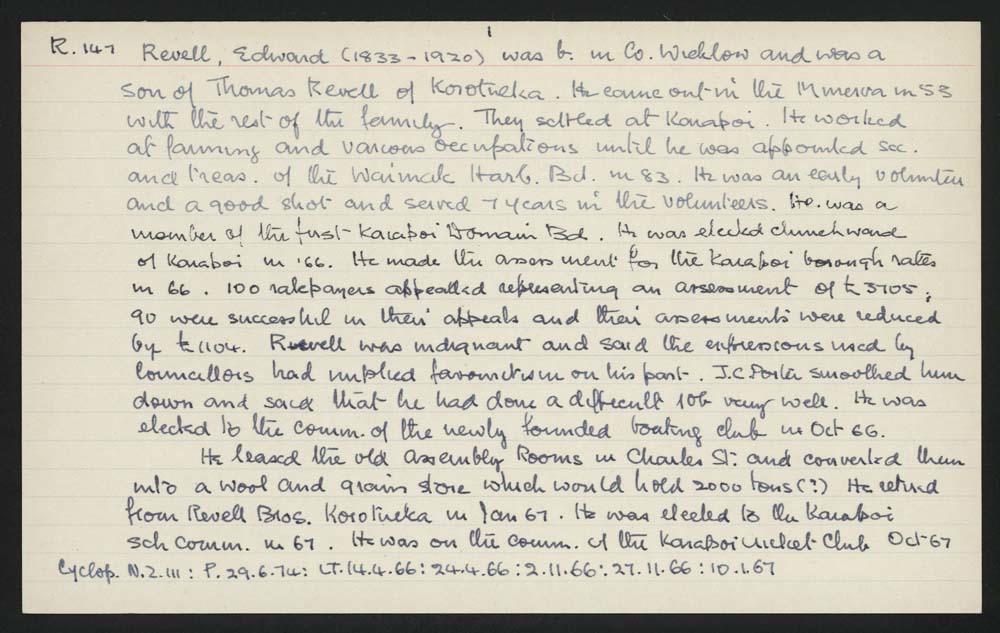 R.147 Revell, Edward (1833-1920) was b. in Co. Wicklow and was a
son of Thomas Revell of Korotueka. He came out in the Minerva in 53
with the rest of the family. They settled at Kaiapoi. He worked
at farming and various occupations until he was appointed sec.
and treas. of the Waimak Harb. Bd. in 83. He was an early volunteer
and a good shot and served 7 years in the volunteers. He was a
member of the first Kaiapoi Domain Bd. He was elected churchward
of Kaiapoi in '66. He made the assessment for the Kaiapoi borough rates
in 66. 100 ratepayers appealled representing an assessment of £3705;
90 were successful in their appeals and their assessments were reduced
by £1104. Revell was indignant and said the expressions used by
councillors had implied favouritism on his part. J.C. Porter smoothed him
down and said that he had done a difficult job very well. He was
elected to the comm. of the newly founded boating club in Oct 66.
He leased the old Assembly Rooms in Charles St. and converted them
into a wool and grain store which would hold 2000 tons (?) He retired
from Revell Bros. Korotueka in Jan 67. He was elected to the Kaiapoi
sch comm. in 67. He was on the comm. of the Kaiapoi cricket club Oct 67
Cyclop. N.Z. III: P. 29.6.74: LT. 14.4.66: 24.4.66: 2.11.66: 27.11.66: 10.1.67